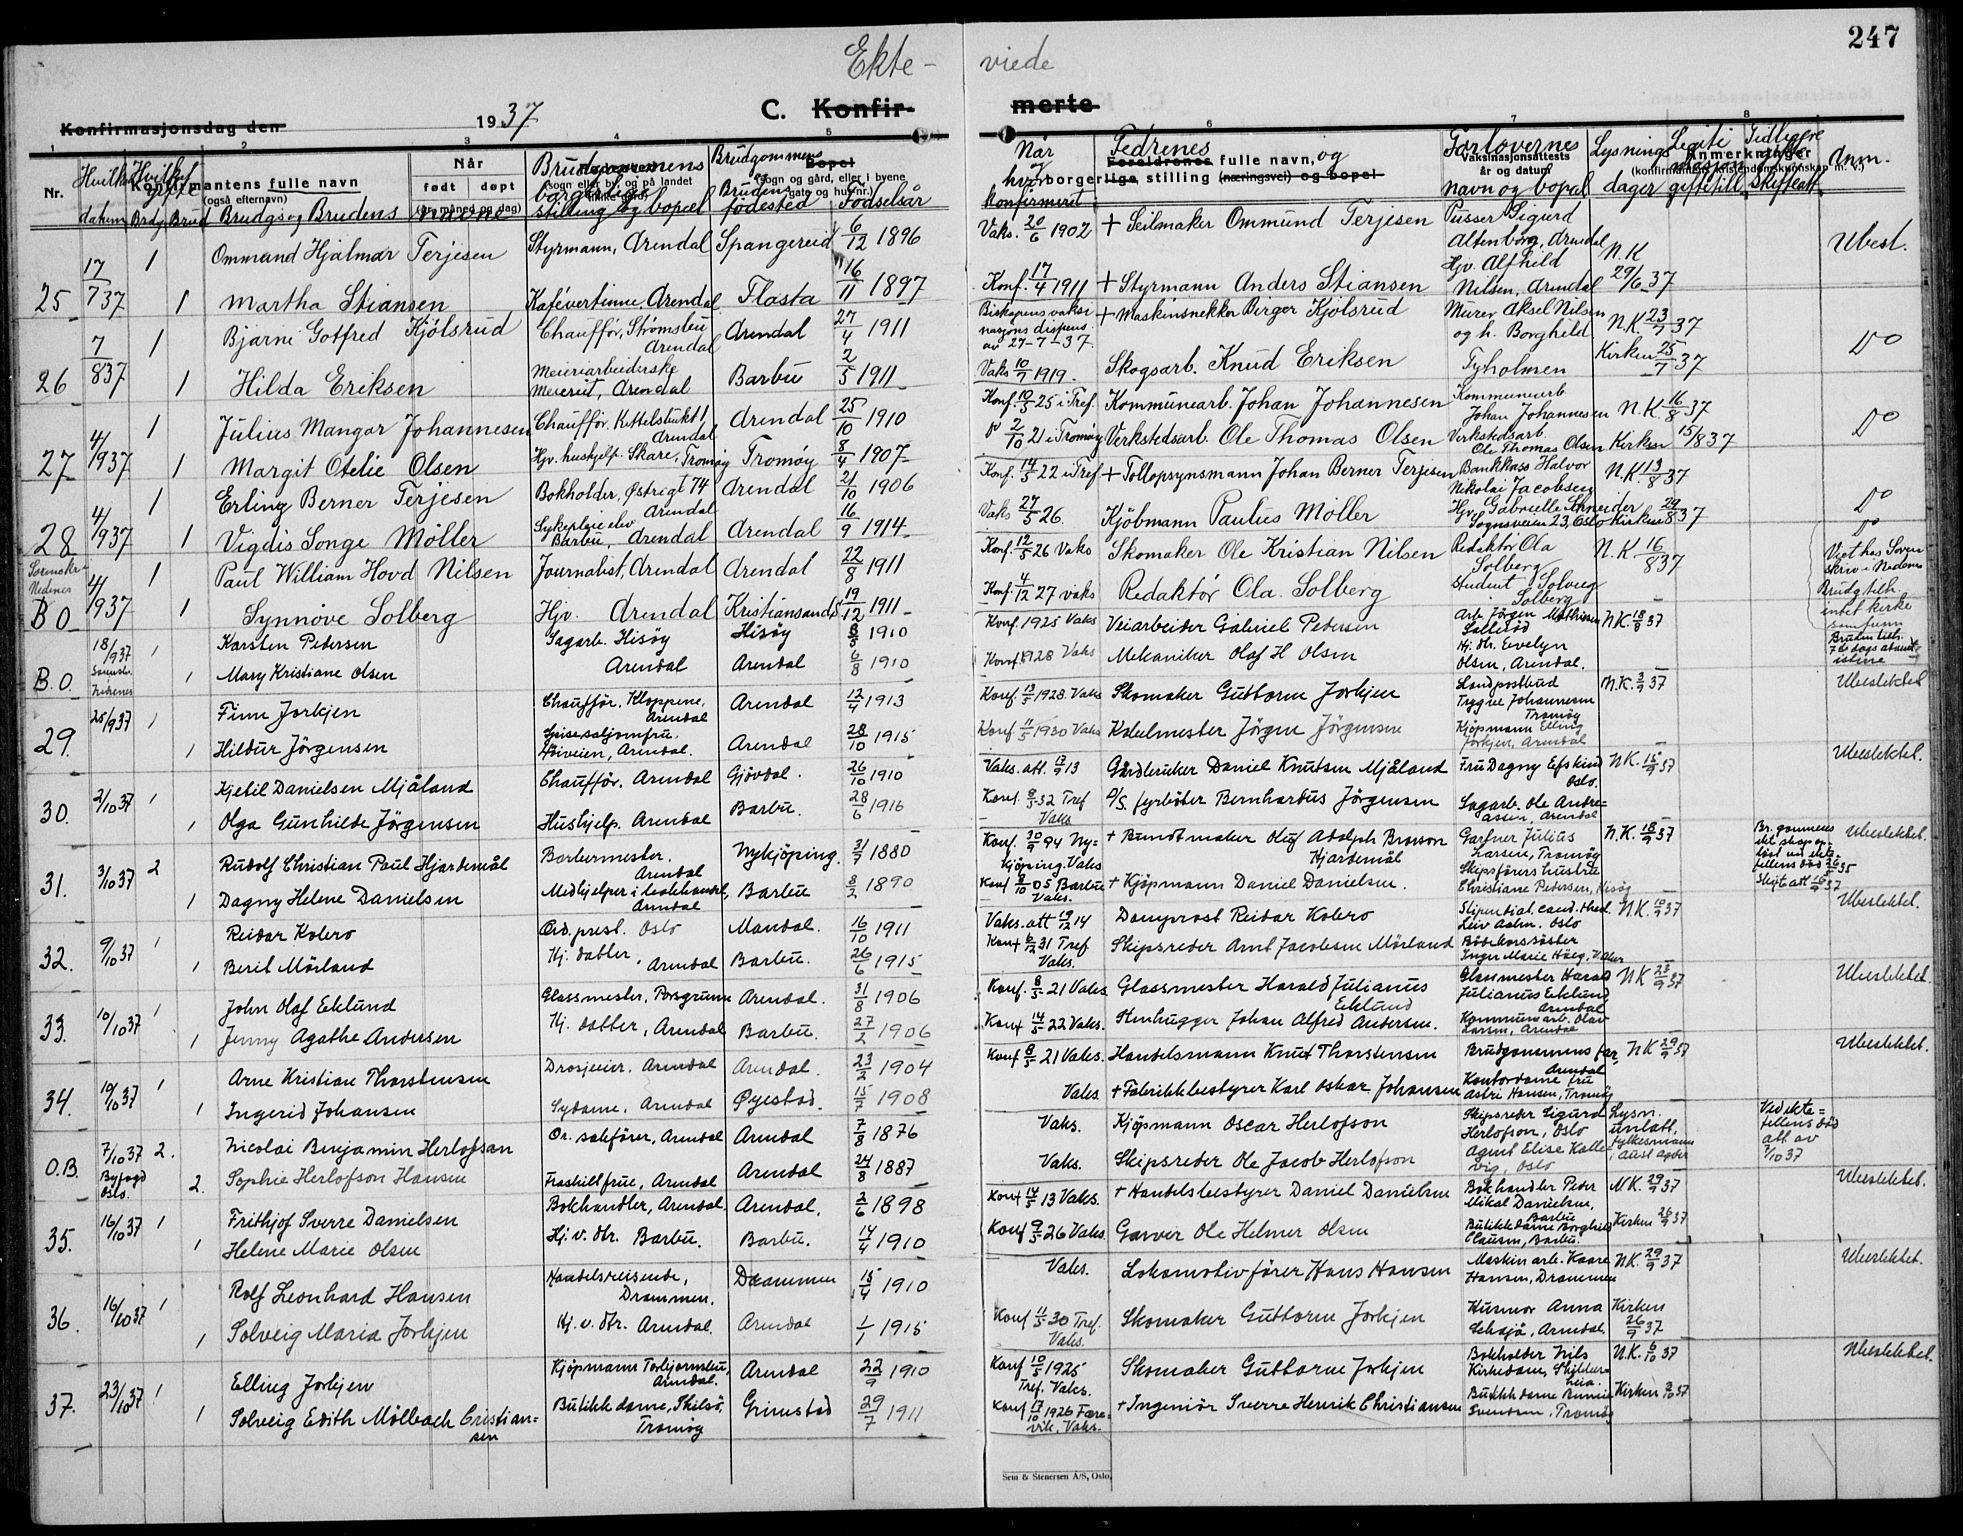 247
Ekte- viede
Konfirmasjonsdag den 1937 C. Konfir- merte
1 2 3 4 5 6 7 8
Nr. Hvilken datum Hvilket gifte Brdg. Brud
Konfirmantens fulle navn
(også efternavn)
Brudgs og Brudens navne
Når
født døpt
(år, måned og dag)
Brudgommens borgerlige stilling og bopel
Brudgommens Brudens fødested Fødselsår
Bopel
(sogn og gård, eller i byene gate og hus nr.)
Når og hvor Konfirmert
Fedrenes
Foreldrenes fulle navn, og
borgerlige stilling (næringsvei) og bopel
Forlovernes
Vaksinasjonsattests
år og datum
navn og bopel
Lysnings dager
Anmerkninger
(konfirmantens kristendomskunnskap m. v.)
Tidligere gifte til Skifteatt. Anm.
25 17/7 37 1 Ommund Hjalmar Terjesen Styrmann, Arendal Spangereid 6/12 1896 Vaks. 20/6 1902 + Seilmaker Ommund Terjesen Pusser Sigurd Altenborg, Arendal N.K. Ubesl.
1 Martha Stiansen Kafévertinne, Arendal Flosta 16/11 1897 Konf. 17/4 1911 + Styrmann Anders Stiansen Hjv. Alfhild Nilsen, Arendal 29/6 37
26 7/8 37 1 Bjarne Gotfred Kjølsrud Chauffør, Strømsbu Arendal Arendal 27/4 1911 Biskopens vaksinasjons dispens. av 27-7-37. + Maskinsnekker Birger Kjølsrud Murer Aksel Nilsen N.K. 23/7 37 Do
1 Hilda Eriksen Meieriarbeiderske Meieriet, Arendal Barbu 2/5 1911 Vaks 10/7 1919. Skogsarb. Knud Eriksen og h. Borghild Tyholmen Kirken 25/7 37
27 4/9 37 1 Julius Mangor Johannesen Chauffør, Kittelsbukt 1 Arendal Arendal 25/10 1910 Konf. 10/5 25 i Tref. Kommunearb. Johan Johannesen Kommunearb. Johan Johannesen N.K. 16/8 37 Do
1 Margit Otelie Olsen Hjv. hushjelp. Skare, Tromøy Tromøy 8/4 1907 do 2/10 21 i Tromøy Verkstedsarb. Ole Thomas Olsen Verkstedsarb. Ole Thomas Olsen Kirken 15/8 37
28 4/9 37 1 Erling Berner Terjesen Bokholder, Østregt 74 Arendal Arendal 21/10 1906 Konf. 14/5 22 i Tref + Tollopsynsmann Johan Berner Terjesen Bankkass Halvor Nikolai Jacobsen N.K. 13/8 37 Do
1 Vigdis Songe Møller Sykepleie elev Barbu, Arendal Arendal 16/9 1914 Vaks 27/5 26. Kjøbmann Paulus Møller Hjv. Gabrielle Schneider Sognsveien 23, Oslo Kirken 22/8 37 Do
Sorenskr. Nedenes
B O 4/9 37 1 Paul William Hovd Nilsen Journalist, Arendal Arendal 22/8 1911 Konf. 12/5 26 Vaks Skomaker Ole Kristian Nilsen Redaktør Ola Solberg N.K. 16/8 37 Viet hos Sorenskriv i Nedenes
1 Synnøve Solberg Hjv. Arendal Kristiansand S 19/12 1911 Konf. 4/12 27 vaks Redaktør Ola Solberg Student Solveig Solberg Brudg tilh. intet kirkesamfunn
B.O. 18/9 37 1 Karsten Pedersen Sagarb. Hisøy Hisøy 8/3 1910 Konf. 1925 Vaks Veiarbeider Gabriel Pedersen Arb. Jørgen Mathisen N.K. 18/8 37 Bruden tilh. 7de dags adventistene
Sorenskr. Nedenes 1 Mary Kristiane Olsen Arendal Arendal 6/8 1910 Konf 1928 Vaks Mekaniker Olaf H Olsen Hj. dtr. Evelyn Olsen, Arendal.
29. 25/9 37 1 Finn Jorkjen Chauffør, Kloppene, Arendal Arendal 12/4 1913 Konf. 13/5 1928. Vaks Skomaker Guttorm Jorkjen Landpostbud Trygve Johannesen Tromøy N.K. 3/9 37 Ubeslektet.
1 Hildur Jörgensen Spisesaljomfru. Høiveien, Arendal. Arendal 28/10 1915 Konf 11/5 1930 Vaks Kobelmester Jörgen Jörgensen Kjøpmann Elling Jorkjen, Arendal
30. 2/10 37 1 Kjetil Danielsen Mjåland Chauffør. Arendal Gjövdal. 26/10 1910 Vaks. att. 17/9 13 Gårdbruker Daniel Knutsen Mjåland Fru Dagny Efskind Oslo. N.K. 15/9 37 Ubeslektet.
1 Olga Gunhilde Jörgensen Hushjelp. Arendal Barbu. 28/6 1916 Konf. 8/5 32 Tref Vaks D/S. fyrböter Bernhardus Jörgensen Sagarb. Ole Andreassen, Arendal
31. 3/10 37 2 Rudolf Christian Paul Hjardemål Barbermester. Arendal Nykjöping. 31/7 1880 Konf. 30/9 94 Nykjöping. Vaks + Bundtmaker Oluf Adolph Brorson Hjardemål Gartner Julius Larsen, Tromøy N.K. 18/9 37 Br. gommens ekteskap opløst ved ektefellens død 26/6 35 Skift. att 16/9 37 Ubeslektet.
1 Dagny Helene Danielsen Medhjelper i bokhandel, Arendal Barbu 8/2 1890 Konf 8/10 05 Barbu Vaks. + Kjöpmann Daniel Danielsen. Skipsförers hustru Christiane Petersen, Hisøy
32. 9/10 37 1 Reidar Kobro Ord. prest. Oslo Mandal. 16/10 1911 Vaks. att 19/12 14 Domprost Reidar Kobro Stipendiat, cand. theol. Leiv Aalen. Oslo N.K. 10/9 37 Ubeslektet.
1 Beril Mörland Hj. datter, Arendal Barbu. 26/6 1915 Konf 6/12 31 Tref Vaks. Skipsreder Arnt Jacobsen Mörland Rödekorssöster Inger Marie Höeg,
33. 10/10 37 1 John Olaf Eklund Glassmester, Porsgrunn Arendal. 31/8 1906 Konf. 8/5 21 Vaks Glassmester Harald Julianus Eklund Glassmester Harald Julianus Eklund Arendal N.K 23/9 37 Ubeslektet.
1 Jenny Agathe Andersen Hj. datter, Arendal Barbu. 27/2 1906 Konf 14/5 22 Vaks. Stenhugger Johan Alfred Andersen. Kommunearb. Olav Larsen, Arendal
34. 10/10 37 1 Arne Kristian Thorstensen Drosjeeier. Arendal Arendal. 23/2 1904 Konf 8/5 21 Vaks. Handelsmann Knut Thorstensen Brudgommens far, Arendal N.K 29/9 37 Ubeslektet.
1 Ingerid Johansen Sydame. Arendal Øyestad. 15/7 1908 Vaks. + Fabrikkbestyrer Karl Oskar Johansen Kontordame fru Astri Hansen, Tromøy
O.B. 7/10 37 2. Nicolai Benjamin Herlofson Or. sakfører, Arendal Arendal 7/8 1876 Vaks. Kjöpmann Oscar Herlofson Skipsreder Sigurd Herlofson, Oslo Lysn. unlatt. fylkesmann i Aust Agder Ved ektefellens död att. av 7/10 37
Byfogd Oslo. 2. Sophie Herlofson Hansen Fraskilt frue, Arendal Arendal 24/8 1887 Vaks. Skipsreder Ole Jacob Herlofson Agnet Elise Kallevig, Oslo
35. 16/10 37 1 Frithjof Sverre Danielsen Bokhandler, Arendal. Arendal. 2/6 1898 Konf 14/5 13 Vaks. + Handelsbestyrer Daniel Danielsen Bokhandler Peter Mikal Danielsen, Barbu N.K. 29/9 37 Ubeslektet.
1 Helene Marie Olsen Hj. v. dtr. Barbu. Barbu. 14/4 1910 Konf 9/5 26 Vaks. Garver Ole Helmer Olsen Butikkdame Borghild Clausen, Barbu. Kirken 26/9 37
36. 16/10 37 1 Rolf Leonhard Hansen Handelsreisende, Drammen. Drammen 15/4 1910 Vaks. Lokomotivfører Hans Hansen Maskinarb. Kaare Hansen, Drammen N.K. 29/9 37 Ubeslektet.
1 Solveig Maria Jorkjen Hj. v. dtr. Arendal. Arendal 1/1 1915 Konf 11/5 30 Tref. Vaks. Skomaker Guttorm Jorkjen Husmor Anna Arendal. Kirken 26/9 37
37. 23/10 37 1 Elling Jorkjen Kjöpmann Torbjørnsbu, Arendal. Arendal 22/9 1910 Konf 10/5 1925 Tref. Vaks. Skomaker Guttorm Jorkjen Bokholder Nils Kirkedam, N.K. 6/10 37 Ubeslektet.
1 Solveig Edith Mölbach Cristiansen Butikkdame, Skilsö, Tromøy Grimstad 29/7 1911 Konf 17/10 1926 Færevik, Vaks. + Ingeniør Sverre Henrik Christiansen Butikkdame Svendsen, Tromøy Kirken 3/10 37
Sem & Stenersen A/S, Oslo.